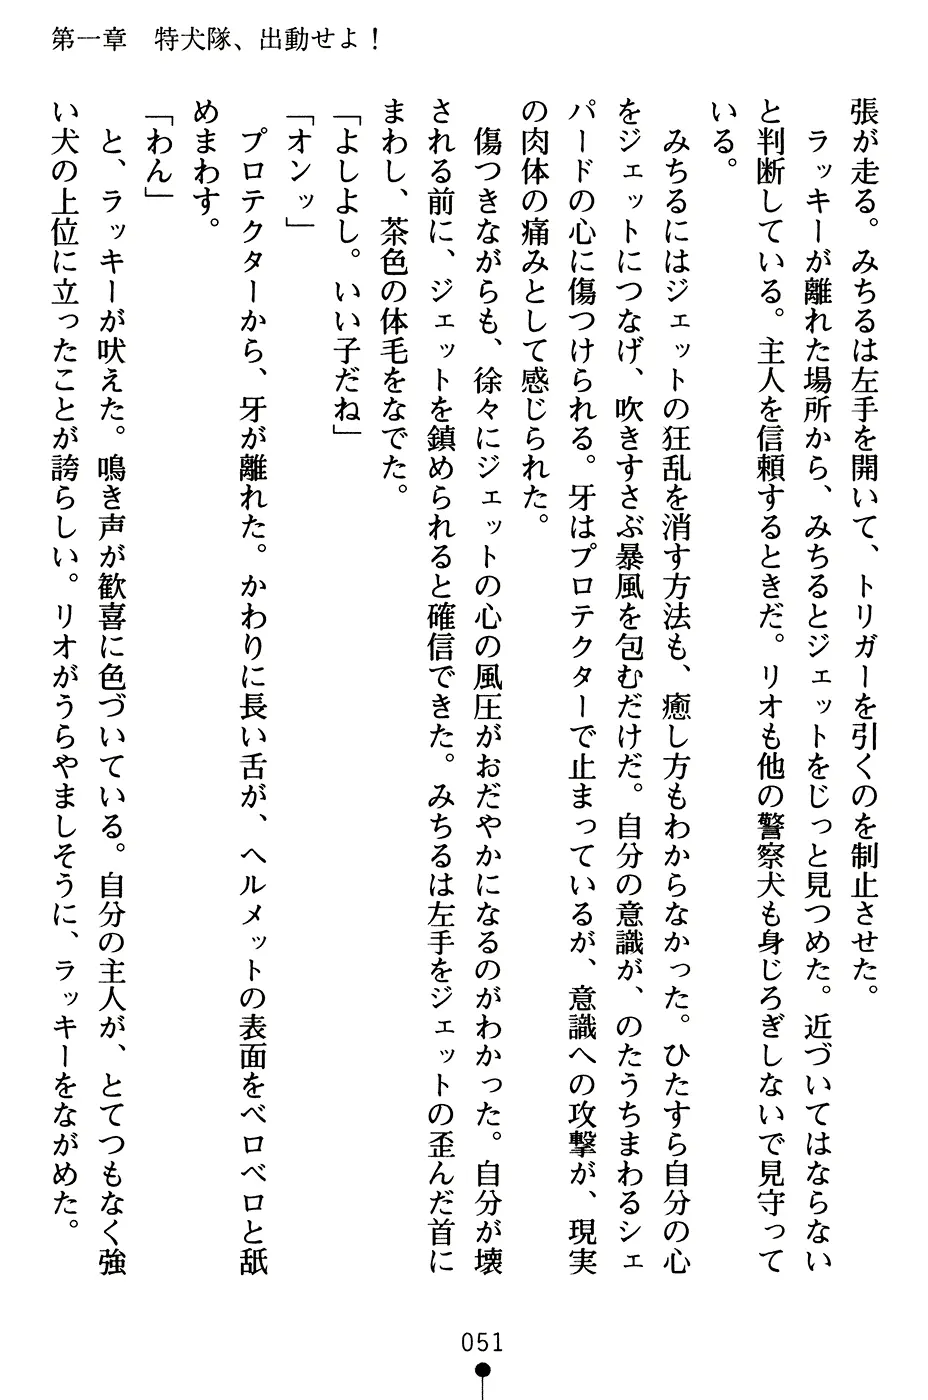 第一章　特犬隊、出動せよ！
張が走る。みちるは左手を開いて、トリガーを引くのを制止させた。
　ラッキーが離れた場所から、みちるとジェットをじっと見つめた。近づいてはならない
と判断している。主人を信頼するときだ。リオも他の警察犬も身じろぎしないで見守って
いる。
　みちるにはジェットの狂乱を消す方法も、癒し方もわからなかった。ひたすら自分の心
をジェットにつなげ、吹きすさぶ暴風を包むだけだ。自分の意識が、のたうちまわるシェ
パードの心に傷つけられる。牙はプロテクターで止まっているが、意識への攻撃が、現実
の肉体の痛みとして感じられた。
　傷つきながらも、徐々にジェットの心の風圧がおだやかになるのがわかった。自分が壊
される前に、ジェットを鎮められると確信できた。みちるは左手をジェットの歪んだ首に
まわし、茶色の体毛をなでた。
「よしよし。いい子だね」
「オンッ」
　プロテクターから、牙が離れた。かわりに長い舌が、ヘルメットの表面をベロベロと舐
めまわす。
「わん」
　と、ラッキーが吠えた。鳴き声が歓喜に色づいている。自分の主人が、とてつもなく強
い犬の上位に立ったことが誇らしい。リオがうらやましそうに、ラッキーをながめた。
051